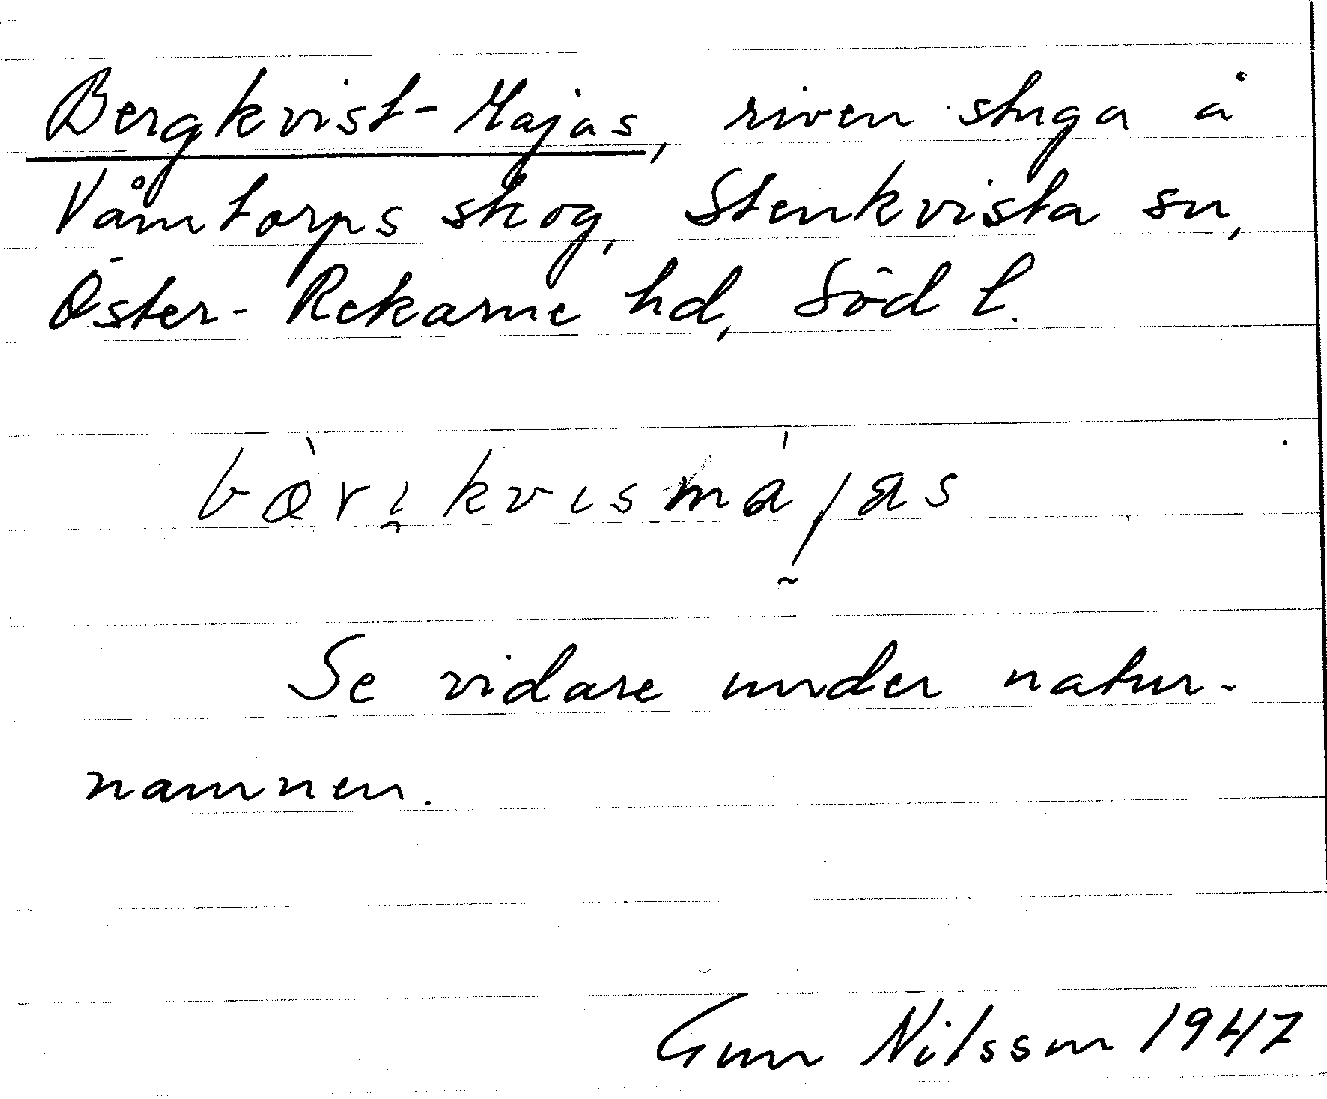 Bergkvist-Majas, riven stuga å
Våmtorps skog, Stenkvista sn,
Öster-Rekarne hd, Söd l.
bæ̀ri̯kvismájas
Se vidare under natur-
namnen.
Gun Nilsson 1947